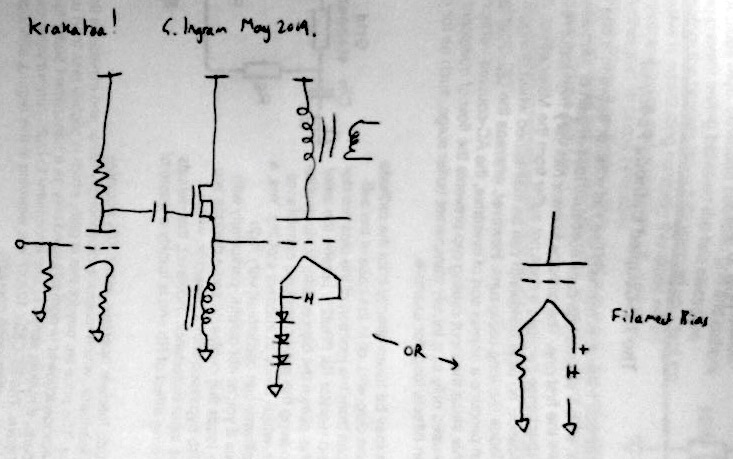 Krakatoa! G. Ingram May 2019.
H
OR
+
H
Filament Bias